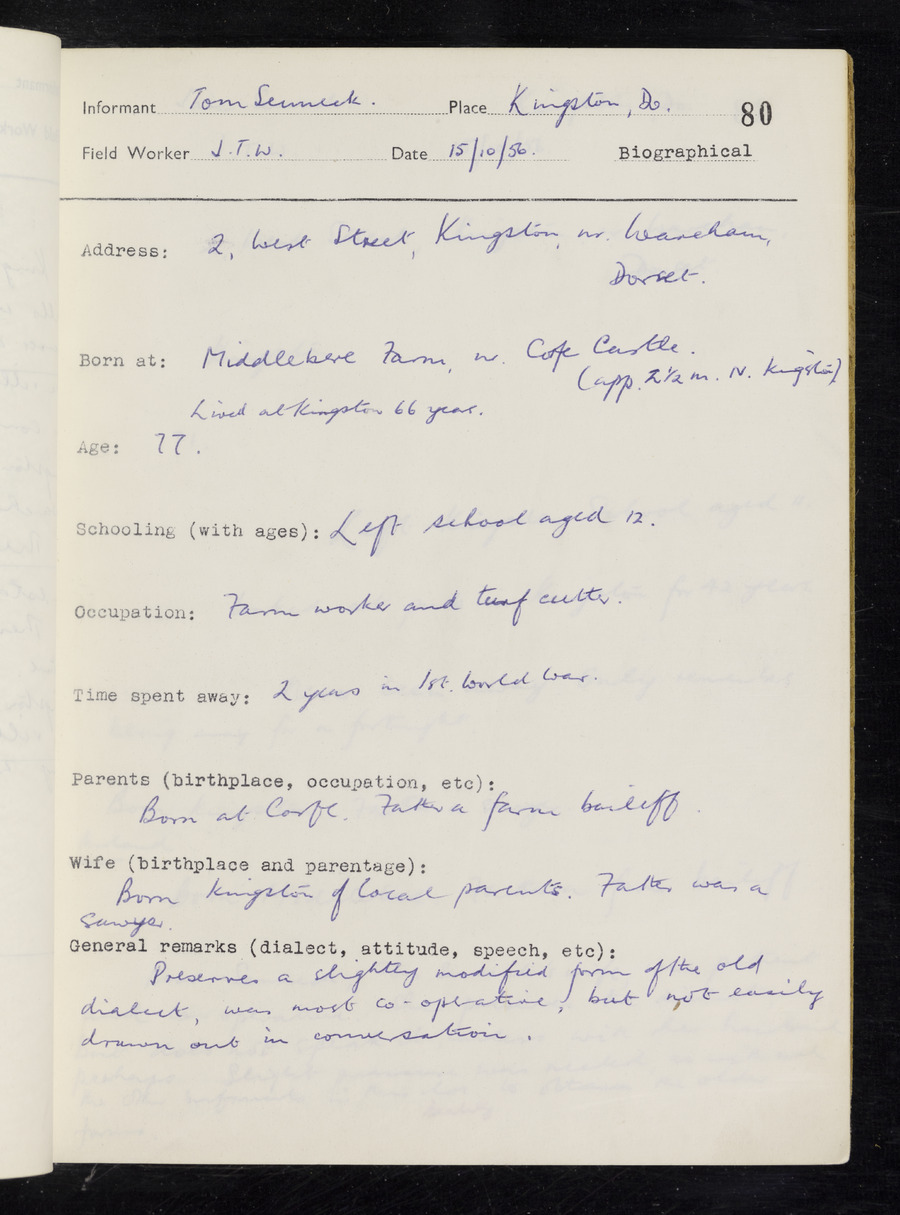 Informant Tom Senneck. Place Kingston, Do. 80
Field Worker J.T.W. Date 15/10/56. Biographical
Address: 2, West Street, Kingston, nr. Wareham,
Dorset.
Born at: Middlebere Farm, nr. Corfe Castle.
(app. 2½ m. N. Kingston)
Lived at Kingston 66 year.
Age: 77.
Schooling (with ages): Left school aged 12.
Occupation: Farm worker and turf cutter.
Time spent away: 2 years in 1st. World War.
Parents (birthplace, occupation, etc):
Born at Corfe. Father a farm bailiff.
Wife (birthplace and parentage):
Born Kingston of local parents. Father was a
sawyer.
General remarks (dialect, attitude, speech, etc):
Preserves a slightly modified form of the old
dialect, was most co-operative, but not easily
drawn out in conversation.